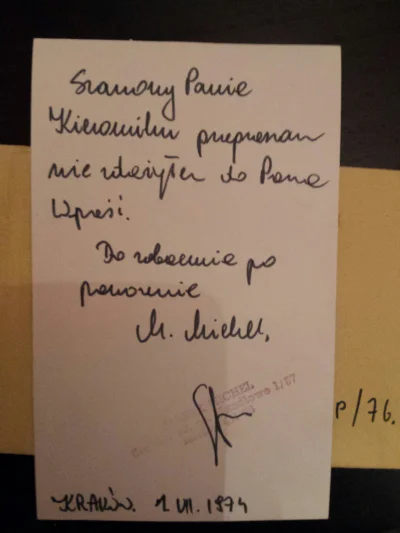 Szanowny Panie
Kierowniku przepraszam
nie zdążyłem do Pana
wpaść.
Do zobaczenia po
powrocie
M. Michel,
CHEL
1/57
P/76.
KRAKÓW. 1 VII. 1974